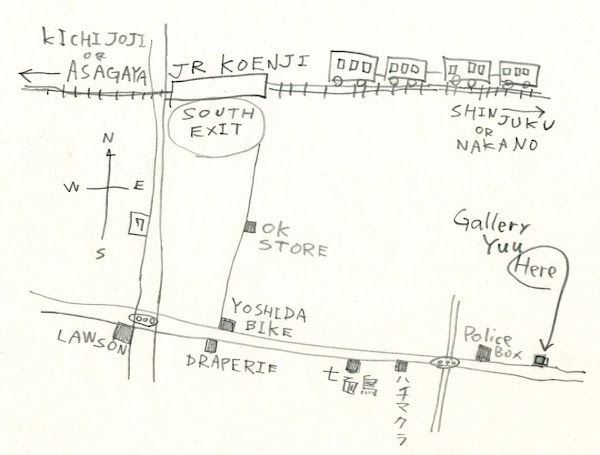 KICHIJOJI
OR
ASAGAYA
JR KOENJI
SOUTH
EXIT
SHINJUKU
OR
NAKANO
N
W
E
S
7
OK
STORE
Gallery
Yuu
Here
YOSHIDA
BIKE
LAWSON
DRAPERIE
七面鳥
ハチマクラ
Police
Box